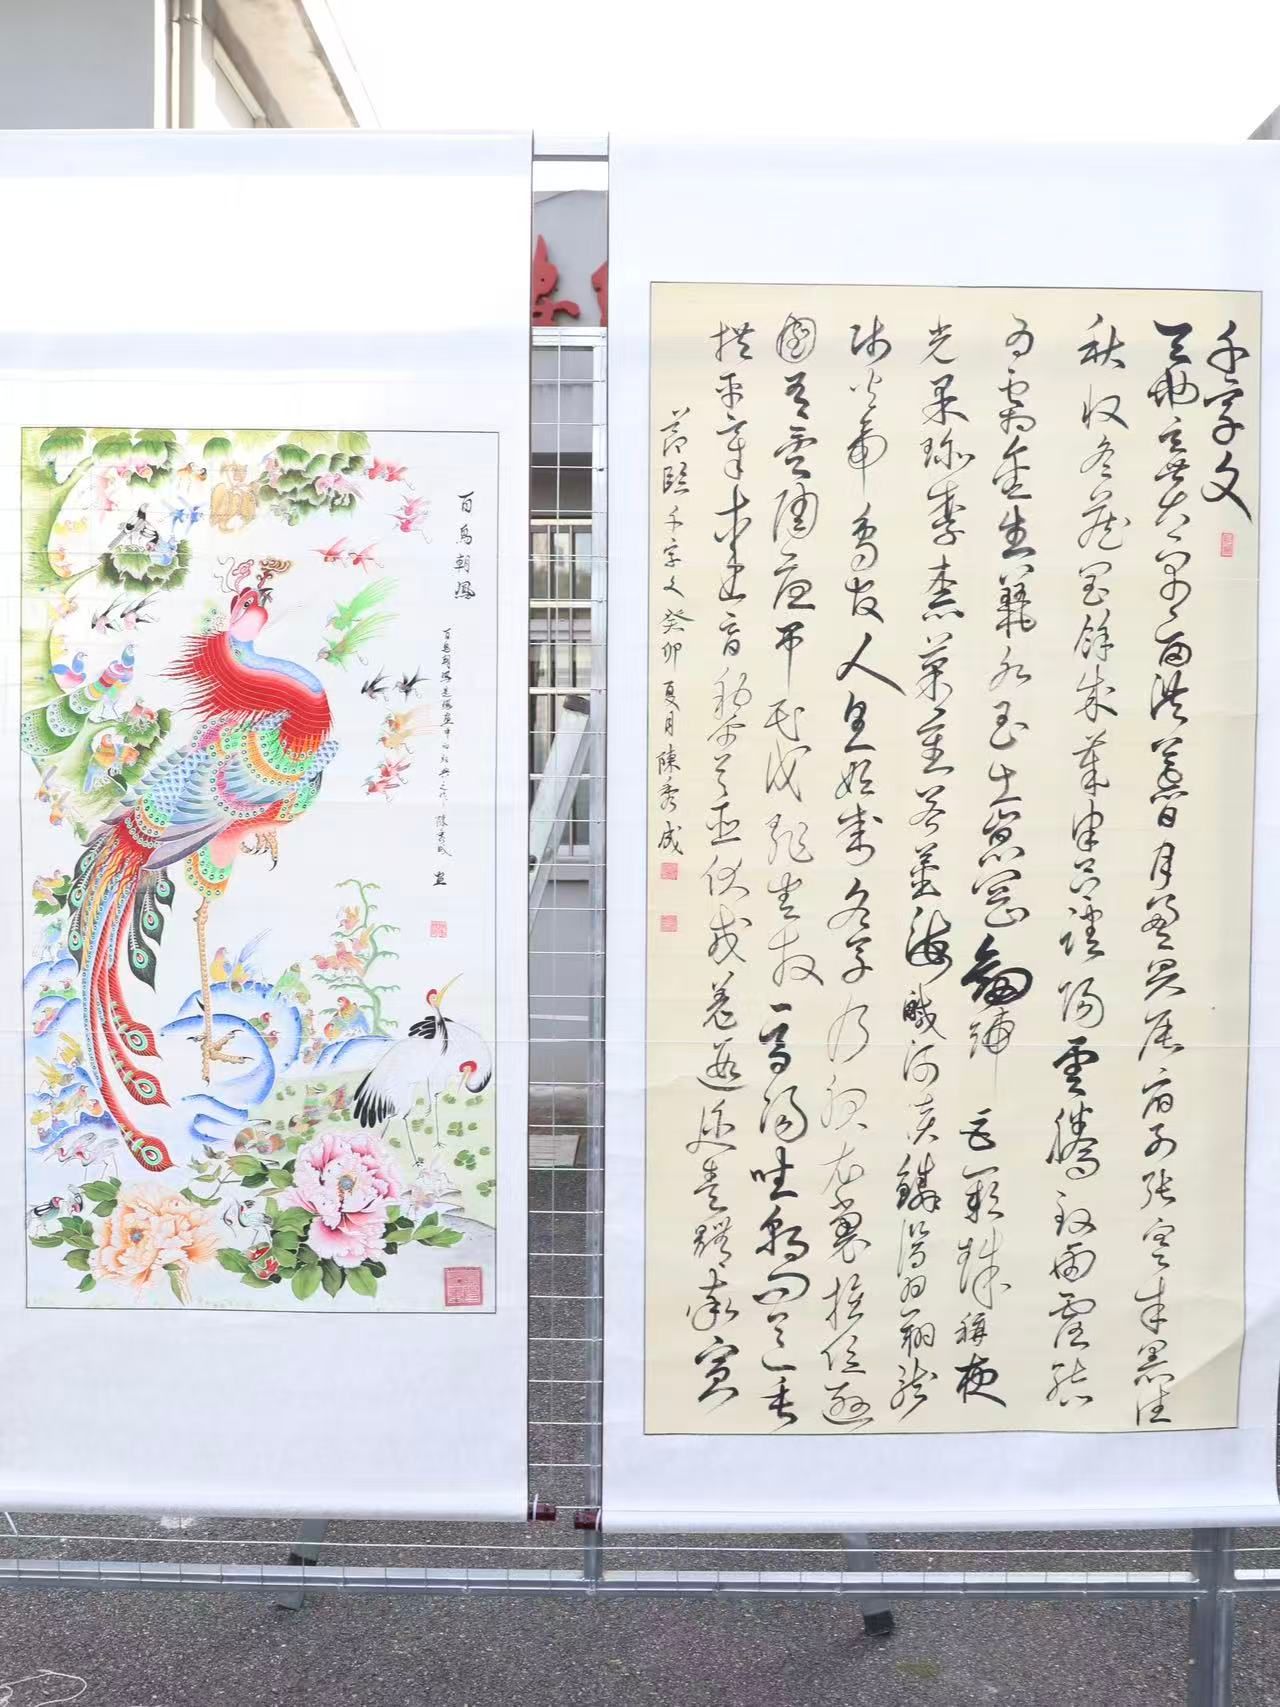 百鳥朝鳳
陳秀成 畫
千字文
天地玄黃宇宙洪荒日月盈昃辰宿列張寒来暑往
秋收冬藏閏餘成歲律呂調陽雲騰致雨露結
為霜金生麗水玉出崑岡劍號巨闕珠稱夜
光果珍李柰菜重芥薑海鹹河淡鱗潛羽翔龍
師火帝鳥官人皇始制文字乃服衣裳推位遜
國有虞陶唐弔民伐罪周發殷湯坐朝問道垂
拱平章愛育黎首臣伏戎羌遐邇壹體率賓
節臨千字文癸卯夏月陳秀成